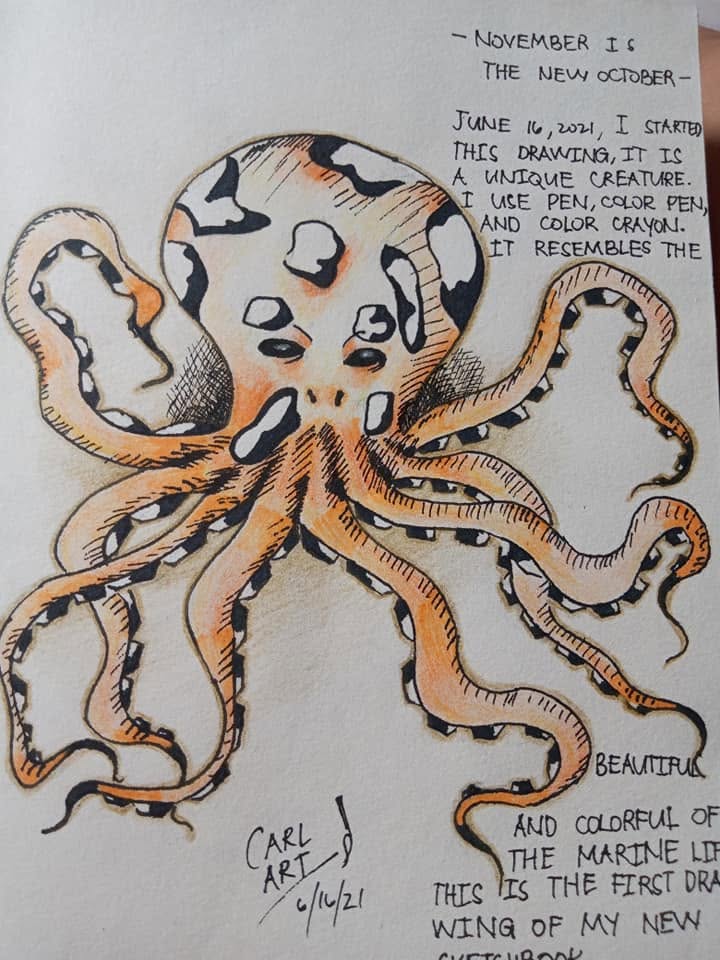 - NOVEMBER IS
THE NEW OCTOBER -
JUNE 16, 2021, I STARTED
THIS DRAWING, IT IS
A UNIQUE CREATURE.
I USE PEN, COLOR PEN,
AND COLOR CRAYON.
IT RESEMBLES THE
BEAUTIFUL
AND COLORFUL OF
THE MARINE LIF
THIS IS THE FIRST DRA
WING OF MY NEW
SKETCHBOOK
CARL
ART
6/16/21